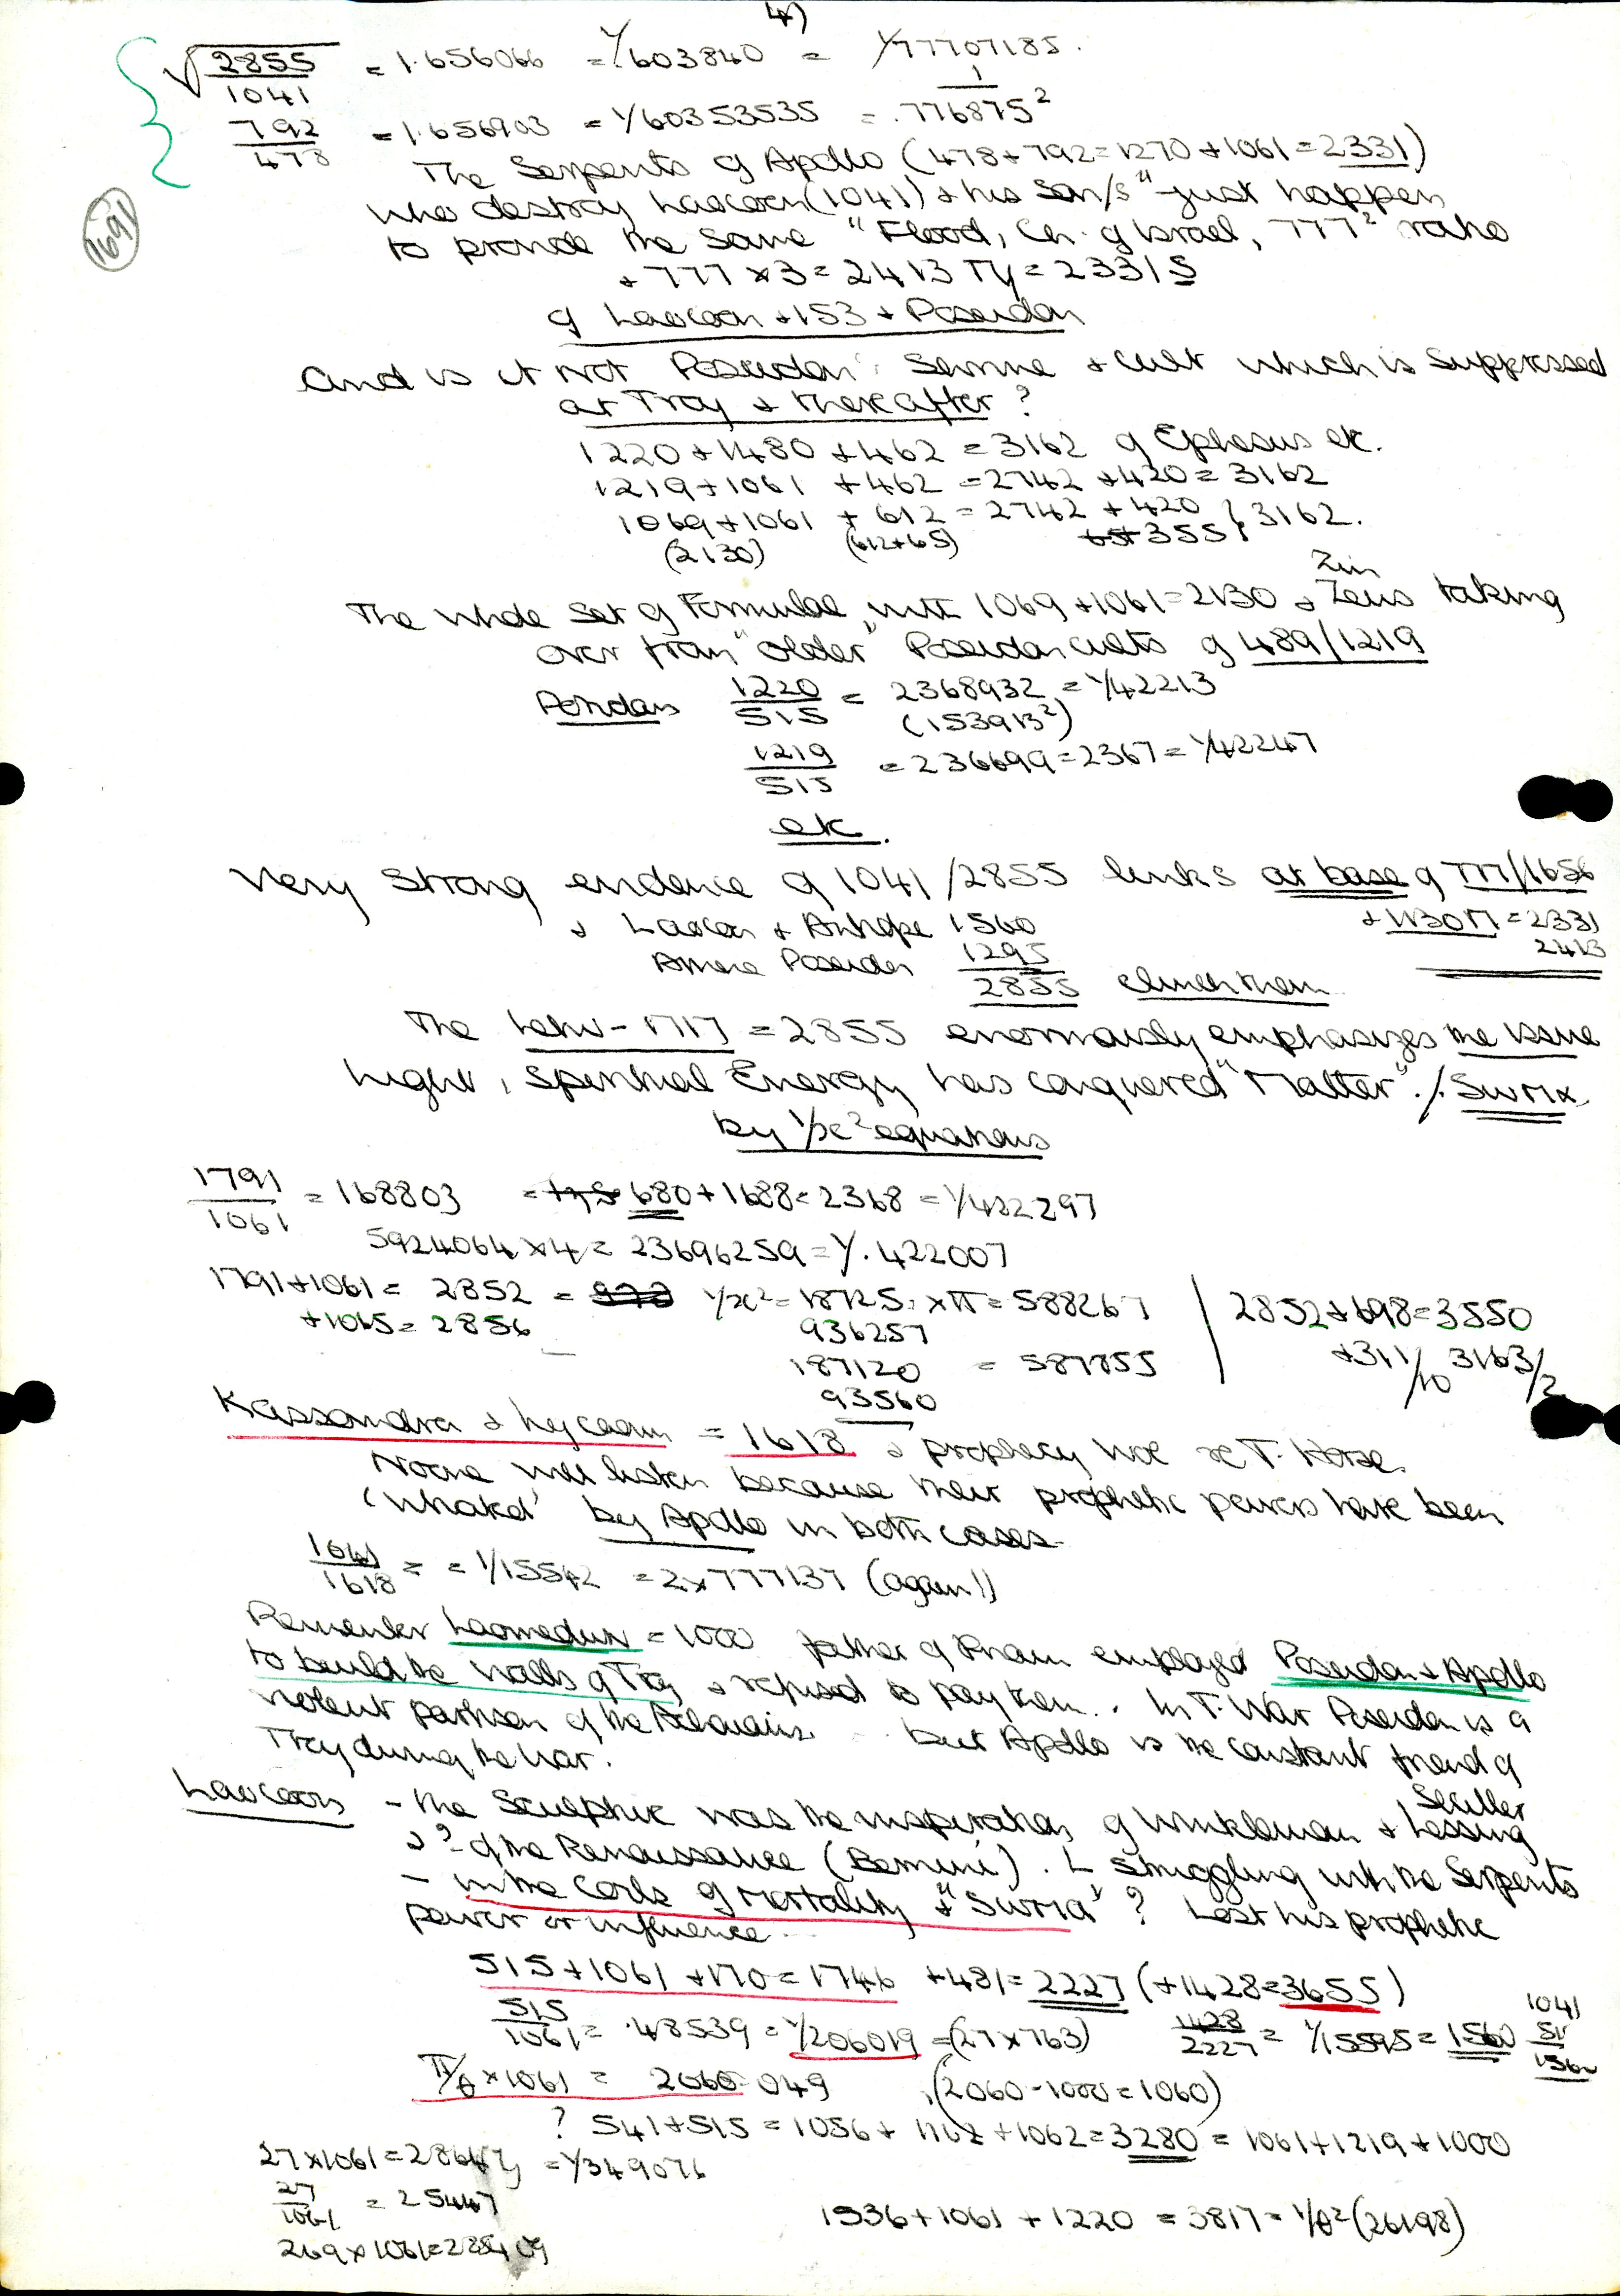 4)
√2855/1041 = 1.656066 = 1/603840 = 1/77707185.
792/478 = 1.656903 = 1/60353535 = 1/.776875²
1691
The Serpents of Apollo (478+792=1270+1061=2331)
who destroy Laocoon (1041) + his son/s "just happen
to provide the same "Flood, Ch. of Israel, 777² ratio
+ 777 x 3 = 2413 TY = 23315
of Laocoon + 153 + Poseidon
And is it not Poseidon's Semine + cult which is suppressed
at Troy + thereafter?
1220 + 1480 + 462 = 3162 of Ephesus etc.
1219 + 1061 + 462 = 2742 + 420 = 3162
1069 + 1061 + 612 = 2742 + 420 } 3162.
(2130) (612+65) 65+ 355
Zin
The whole set of Formulae, with 1069 + 1061 = 2130 + Zeus taking
over from "older" Poseidon cults of 489/1219
Poseidon 1220/515 = 2368932 = 1/42213
(153913²)
1219/515 = 236699 = 2367 = 1/42247
etc.
Very strong evidence of 1041/2855 links at base of 777/1656
+ Laocoon + Antiope 1560
+ = 2331
Poseidon 1295
2413
2855 clinch them
The = 2855 enormously emphasizes the issue
Light, Spiritual Energy has conquered "Matter". /
by 1/x² equations
1791/1061 = 168803 = 680 + 1688 = 2368 = 1/422297
5924064 x 4 = 23696259 = 1/.422007
1791 + 1061 = 2852 = 1/x² = 18725. x π = 588267 | 2852 + 698 = 3550
+ 1065 = 2856 936257 + 311/10 3163/2
187120 = 587855
93560
Kassandra + Lycaon = 1618 + prophecy re T. Horse.
Noone will listen because their prophetic powers have been
by Apollo in both cases.
1041/1618 = = 1/15542 = 2 x 777137 (again!)
Remember Laomedon = 1000 father of Priam employed Poseidon + Apollo
to build the walls of Troy + refused to pay them. In T. War Poseidon is a
violent partisan of the but Apollo is the constant friend of
Troy during the war.
Schiller
Laocoon - the Sculpture was the inspiration of Winkleman + Lessing
+ ? of the Renaissance (Bernini). L struggling with the Serpents
- in the Coils of Mortality + ? Lost his prophetic
power or influence
515 + 1061 + 170 = 1746 + 481 = 2227 (+1428 = 3655)
515/1061 = .48539 = 1/206019 = (27 x 763) 1428/2227 = 1/15595 = 1560 1041
1560
π/θ x 1061 = 2060.049 (2060 - 1000 = 1060)
? 541 + 515 = 1056 + 1162 + 1062 = 3280 = 1061 + 1219 + 1000
27 x 1061 = 28647 = 1/349076
27/1061 = 25447
1536 + 1061 + 1220 = 3817 = 1/θ² (26198)
269 x 1061 = 285409